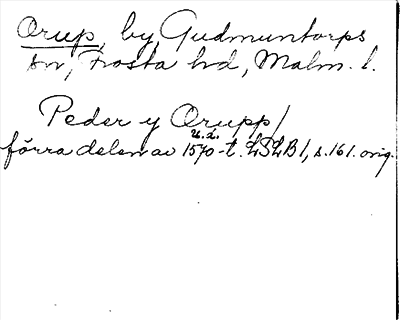 Orup, by, Gudmuntorps
sn, Frosta hd, Malm. l.
Peder y Orupp/
u. å.
förra delen av 1570-t. LSLB1, s. 161. orig.